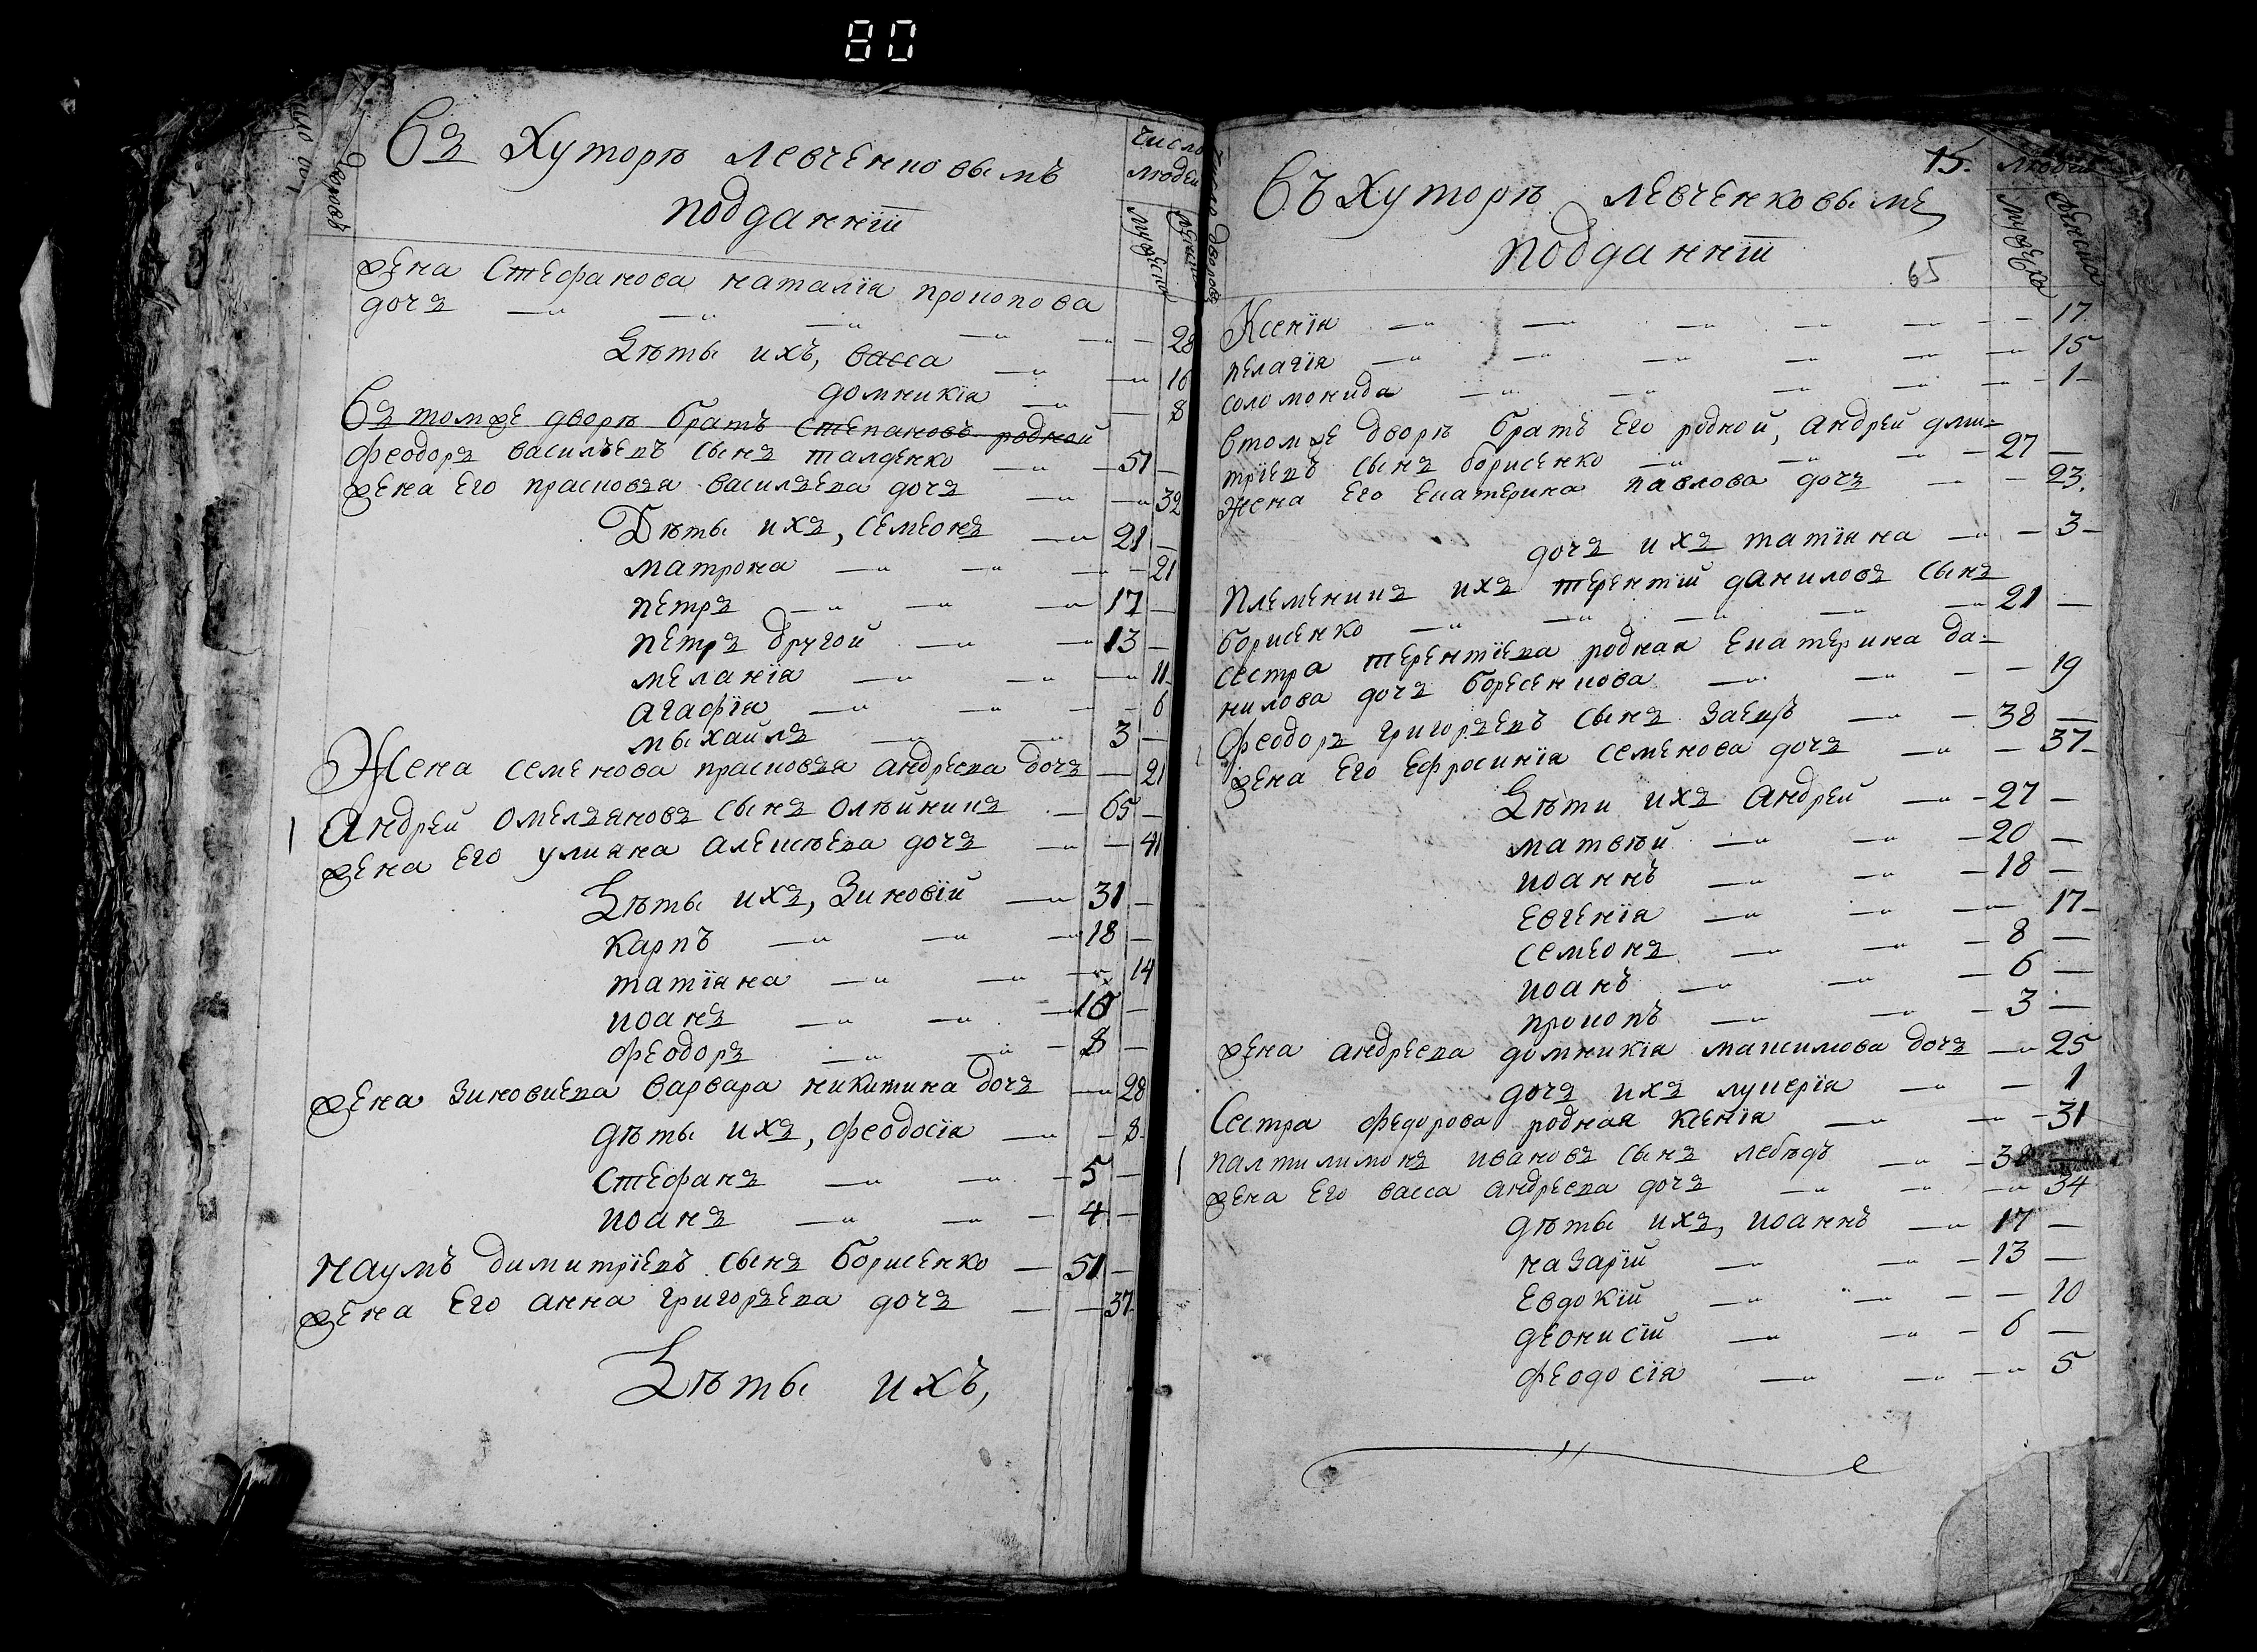 80
Число дворовъ
Въ Хуторѣ Левченковымъ
подданнїи
Число
людей
мужеска
женска
Жена Стефанова наталїя прокопова
дочъ 28
Дѣты ихъ, васса 16
домникїя 8
Въ томже дворѣ братъ Степановъ родной
Феодоръ васильевъ сынъ талденко 51
Жена его прасковъя василъева дочъ 32
Дѣты ихъ, семеонъ 21
матрона 21
петръ 17
петръ другой 13
меланїя 11
агафїя 6
мыхайлъ 3
Жена семенова прасковъя андреева дочъ 21
1 Андрей омелъяновъ сынъ олѣйникъ 65
Жена его улияна алексѣева дочъ 41
Дѣты ихъ, Зиновїй 31
карпъ 18
татїяна 14
иоанъ 10
феодоръ 8
Жена Зиновиева варвара никитина дочъ 28
дѣты ихъ, феодосїя 8
стефанъ 5
иоанъ 4
Наумъ димитрїевъ сынъ борисенко 51
Жена его анна григоръева дочъ 37
Дѣты ихъ,
Число дворовъ
15.
Въ Хуторѣ левченковымъ
людей
подданнїи
мужеска
женска
65
Ксенїя 17
пелагїя 15
соломонида 1
Втомже дворѣ братъ его родной, андрей дми-
трїевъ сынъ борисенко 27
Жена его екатерина павлова дочъ 23.
дочъ ихъ татїяна 3
Племеникъ ихъ терентїй даниловъ сынъ
борисенко 21
Сестра терентїева родная екатерина да-
нилова дочъ борисенкова 19
Феодоръ григоръевъ сынъ Заецъ 38
Жена его ефросинїя семенова дочъ 37
Дѣти ихъ андрей 27
матвѣй 20
иоаннъ 18
евгенїя 17
семеонъ 8
иоанъ 6
прокопъ 3
Жена андреева домникїя максимова дочъ 25
дочъ ихъ лукерїя 1
Сестра федорова родная ксенїя 31
1 палтилимонъ ивановъ сынъ лебѣдъ 38
Жена его васса андреева дочъ 34
дѣты ихъ, иоаннъ 17
назарїй 13
евдокїй 10
деонисїй 6
феодосїя 5